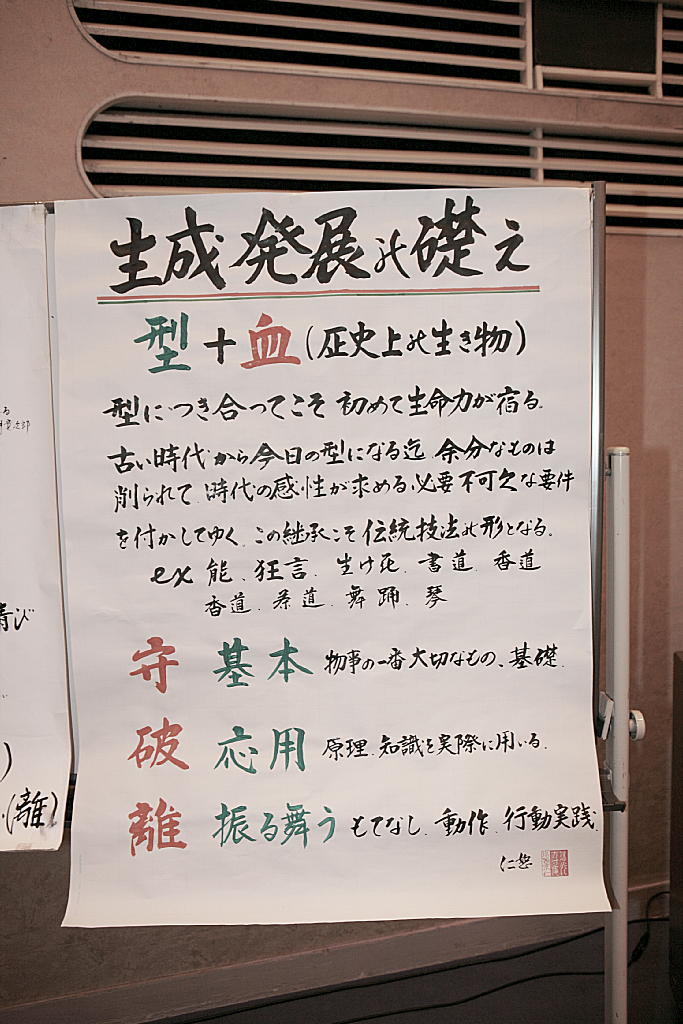 生成発展の礎え
型+血(歴史上の生き物)
型につき合ってこそ 初めて生命力が宿る。
古い時代から今日の型になる迄、余分なものは
削られて、時代の感性が求める、必要不可欠な要件
を付かしてゆく、この継承こそ伝統技法の形となる。
ex 能、狂言、生け花、書道、香道
香道、茶道、舞踊、琴
守 基本 物事の一番大切なもの、基礎。
破 応用 原理、知識を実際に用いる。
離 振る舞う もてなし、動作、行動実践
(離)